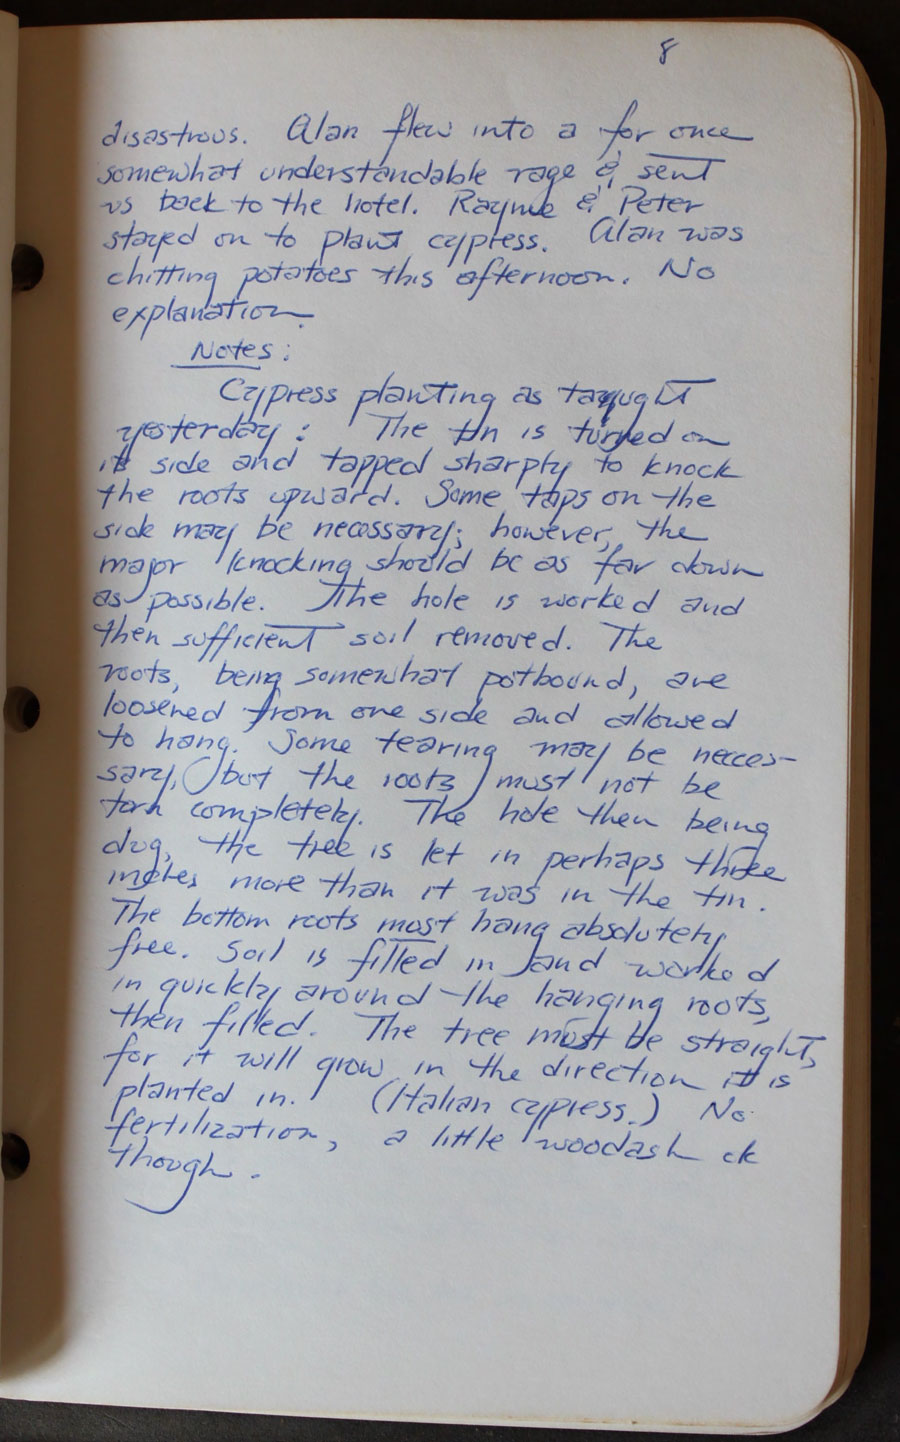 8
disastrous. Alan flew into a for once
somewhat understandable rage & sent
us back to the hotel. Rayme & Peter
stayed on to plant cypress. Alan was
chitting potatoes this afternoon. No
explanation.
Notes:
Cypress planting as taught
yesterday: The tin is turned on
its side and tapped sharply to knock
the roots upward. Some taps on the
side may be necessary; however, the
major knocking should be as far down
as possible. The hole is worked and
then sufficient soil removed. The
roots, being somewhat potbound, are
loosened from one side and allowed
to hang. Some tearing may be necces-
sary, but the roots must not be
torn completely. The hole then being
dug, the tree is let in perhaps three
inches more than it was in the tin.
The bottom roots must hang absolutely
free. Soil is filled in and worked
in quickly around the hanging roots,
then filled. The tree must be straight,
for it will grow in the direction it is
planted in. (Italian cypress.) No
fertilization, a little woodash ok
though.